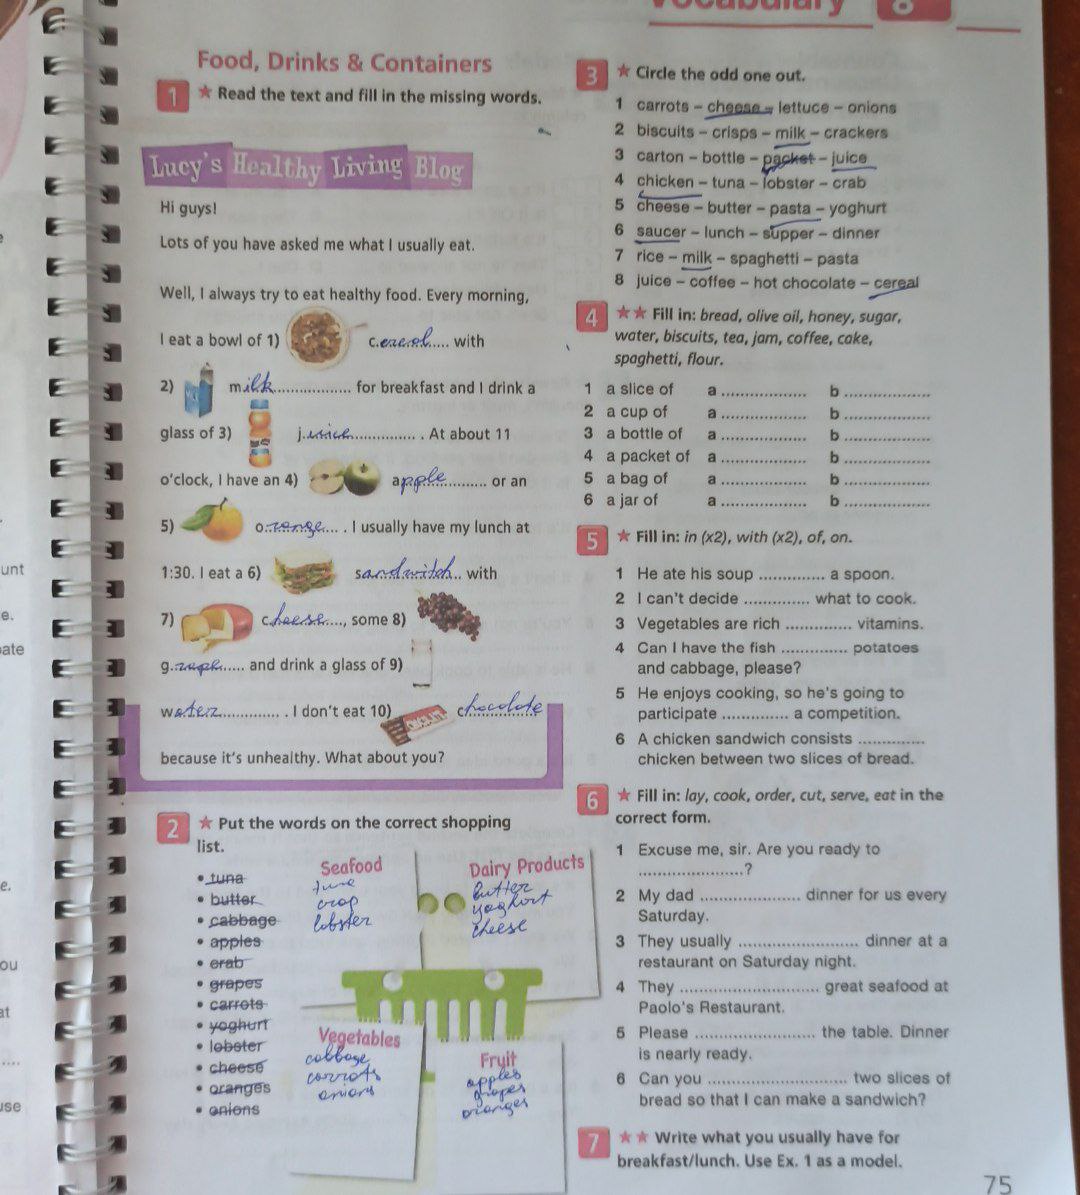 Vocabulary 8
Food, Drinks & Containers
1 ★ Read the text and fill in the missing words.
Lucy's Healthy Living Blog
Hi guys!
Lots of you have asked me what I usually eat.
Well, I always try to eat healthy food. Every morning,
I eat a bowl of 1) cereal..... with
2) milk.................. for breakfast and I drink a
glass of 3) juice............... . At about 11
o'clock, I have an 4) apple........... or an
5) orange.... . I usually have my lunch at
1:30. I eat a 6) sandwitch.. with
7) cheese...., some 8)
g.rape..... and drink a glass of 9)
water.............. . I don't eat 10) chocolate
because it's unhealthy. What about you?
2 ★ Put the words on the correct shopping
list.
• tuna
• butter
• cabbage
• apples
• crab
• grapes
• carrots
• yoghurt
• lobster
• cheese
• oranges
• onions
Seafood
tuna
crap
lobster
Dairy Products
butter
yoghort
cheese
Vegetables
cabbage
carrots
onions
Fruit
apples
grapes
oranges
3 ★ Circle the odd one out.
1 carrots – cheese – lettuce – onions
2 biscuits – crisps – milk – crackers
3 carton – bottle – packet – juice
4 chicken – tuna – lobster – crab
5 cheese – butter – pasta – yoghurt
6 saucer – lunch – supper – dinner
7 rice – milk – spaghetti – pasta
8 juice – coffee – hot chocolate – cereal
4 ★★ Fill in: bread, olive oil, honey, sugar,
water, biscuits, tea, jam, coffee, cake,
spaghetti, flour.
1 a slice of a .................. b ..................
2 a cup of a .................. b ..................
3 a bottle of a .................. b ..................
4 a packet of a .................. b ..................
5 a bag of a .................. b ..................
6 a jar of a .................. b ..................
5 ★ Fill in: in (x2), with (x2), of, on.
1 He ate his soup .............. a spoon.
2 I can't decide .............. what to cook.
3 Vegetables are rich .............. vitamins.
4 Can I have the fish .............. potatoes
and cabbage, please?
5 He enjoys cooking, so he's going to
participate .............. a competition.
6 A chicken sandwich consists ..............
chicken between two slices of bread.
6 ★ Fill in: lay, cook, order, cut, serve, eat in the
correct form.
1 Excuse me, sir. Are you ready to
......................?
2 My dad ..................... dinner for us every
Saturday.
3 They usually ......................... dinner at a
restaurant on Saturday night.
4 They ............................. great seafood at
Paolo's Restaurant.
5 Please ......................... the table. Dinner
is nearly ready.
6 Can you ............................. two slices of
bread so that I can make a sandwich?
7 ★★ Write what you usually have for
breakfast/lunch. Use Ex. 1 as a model.
75